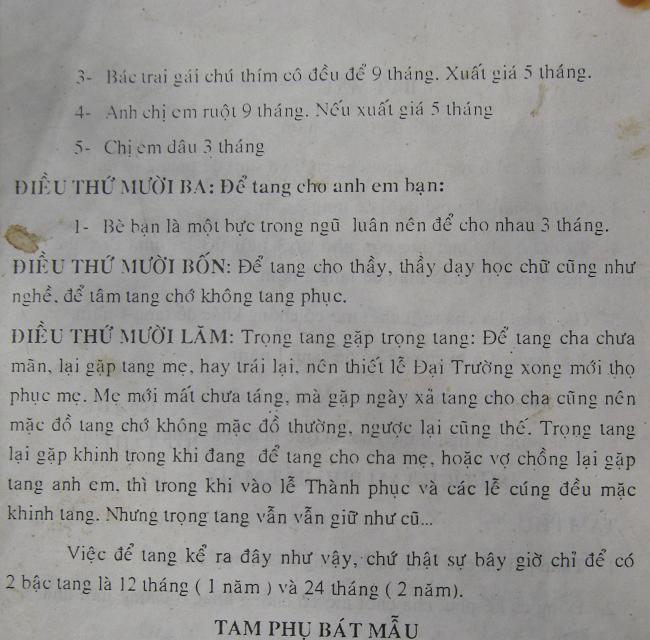 3- Bác trai gái chú thím cô đều để 9 tháng. Xuất giá 5 tháng.
4- Anh chị em ruột 9 tháng. Nếu xuất giá 5 tháng
5- Chị em dâu 3 tháng
ĐIỀU THỨ MƯỜI BA: Để tang cho anh em bạn:
1- Bè bạn là một bực trong ngũ luân nên để cho nhau 3 tháng.
ĐIỀU THỨ MƯỜI BỐN: Để tang cho thầy, thầy dạy học chữ cũng như
nghề, để tâm tang chớ không tang phục.
ĐIỀU THỨ MƯỜI LĂM: Trọng tang gặp trọng tang: Để tang cha chưa
mãn, lại gặp tang mẹ, hay trái lại, nên thiết lễ Đại Trường xong mới thọ
phục mẹ. Mẹ mới mất chưa táng, mà gặp ngày xả tang cho cha cũng nên
mặc đồ tang chớ không mặc đồ thường, ngược lại cũng thế. Trọng tang
lại gặp khinh trong khi đang để tang cho cha mẹ, hoặc vợ chồng lại gặp
tang anh em, thì trong khi vào lễ Thành phục và các lễ cúng đều mặc
khinh tang. Nhưng trọng tang vẫn vẫn giữ như cũ...
Việc để tang kể ra đây như vậy, chứ thật sự bây giờ chỉ để có
2 bậc tang là 12 tháng ( 1 năm ) và 24 tháng ( 2 năm).
TAM PHỤ BÁT MẪU